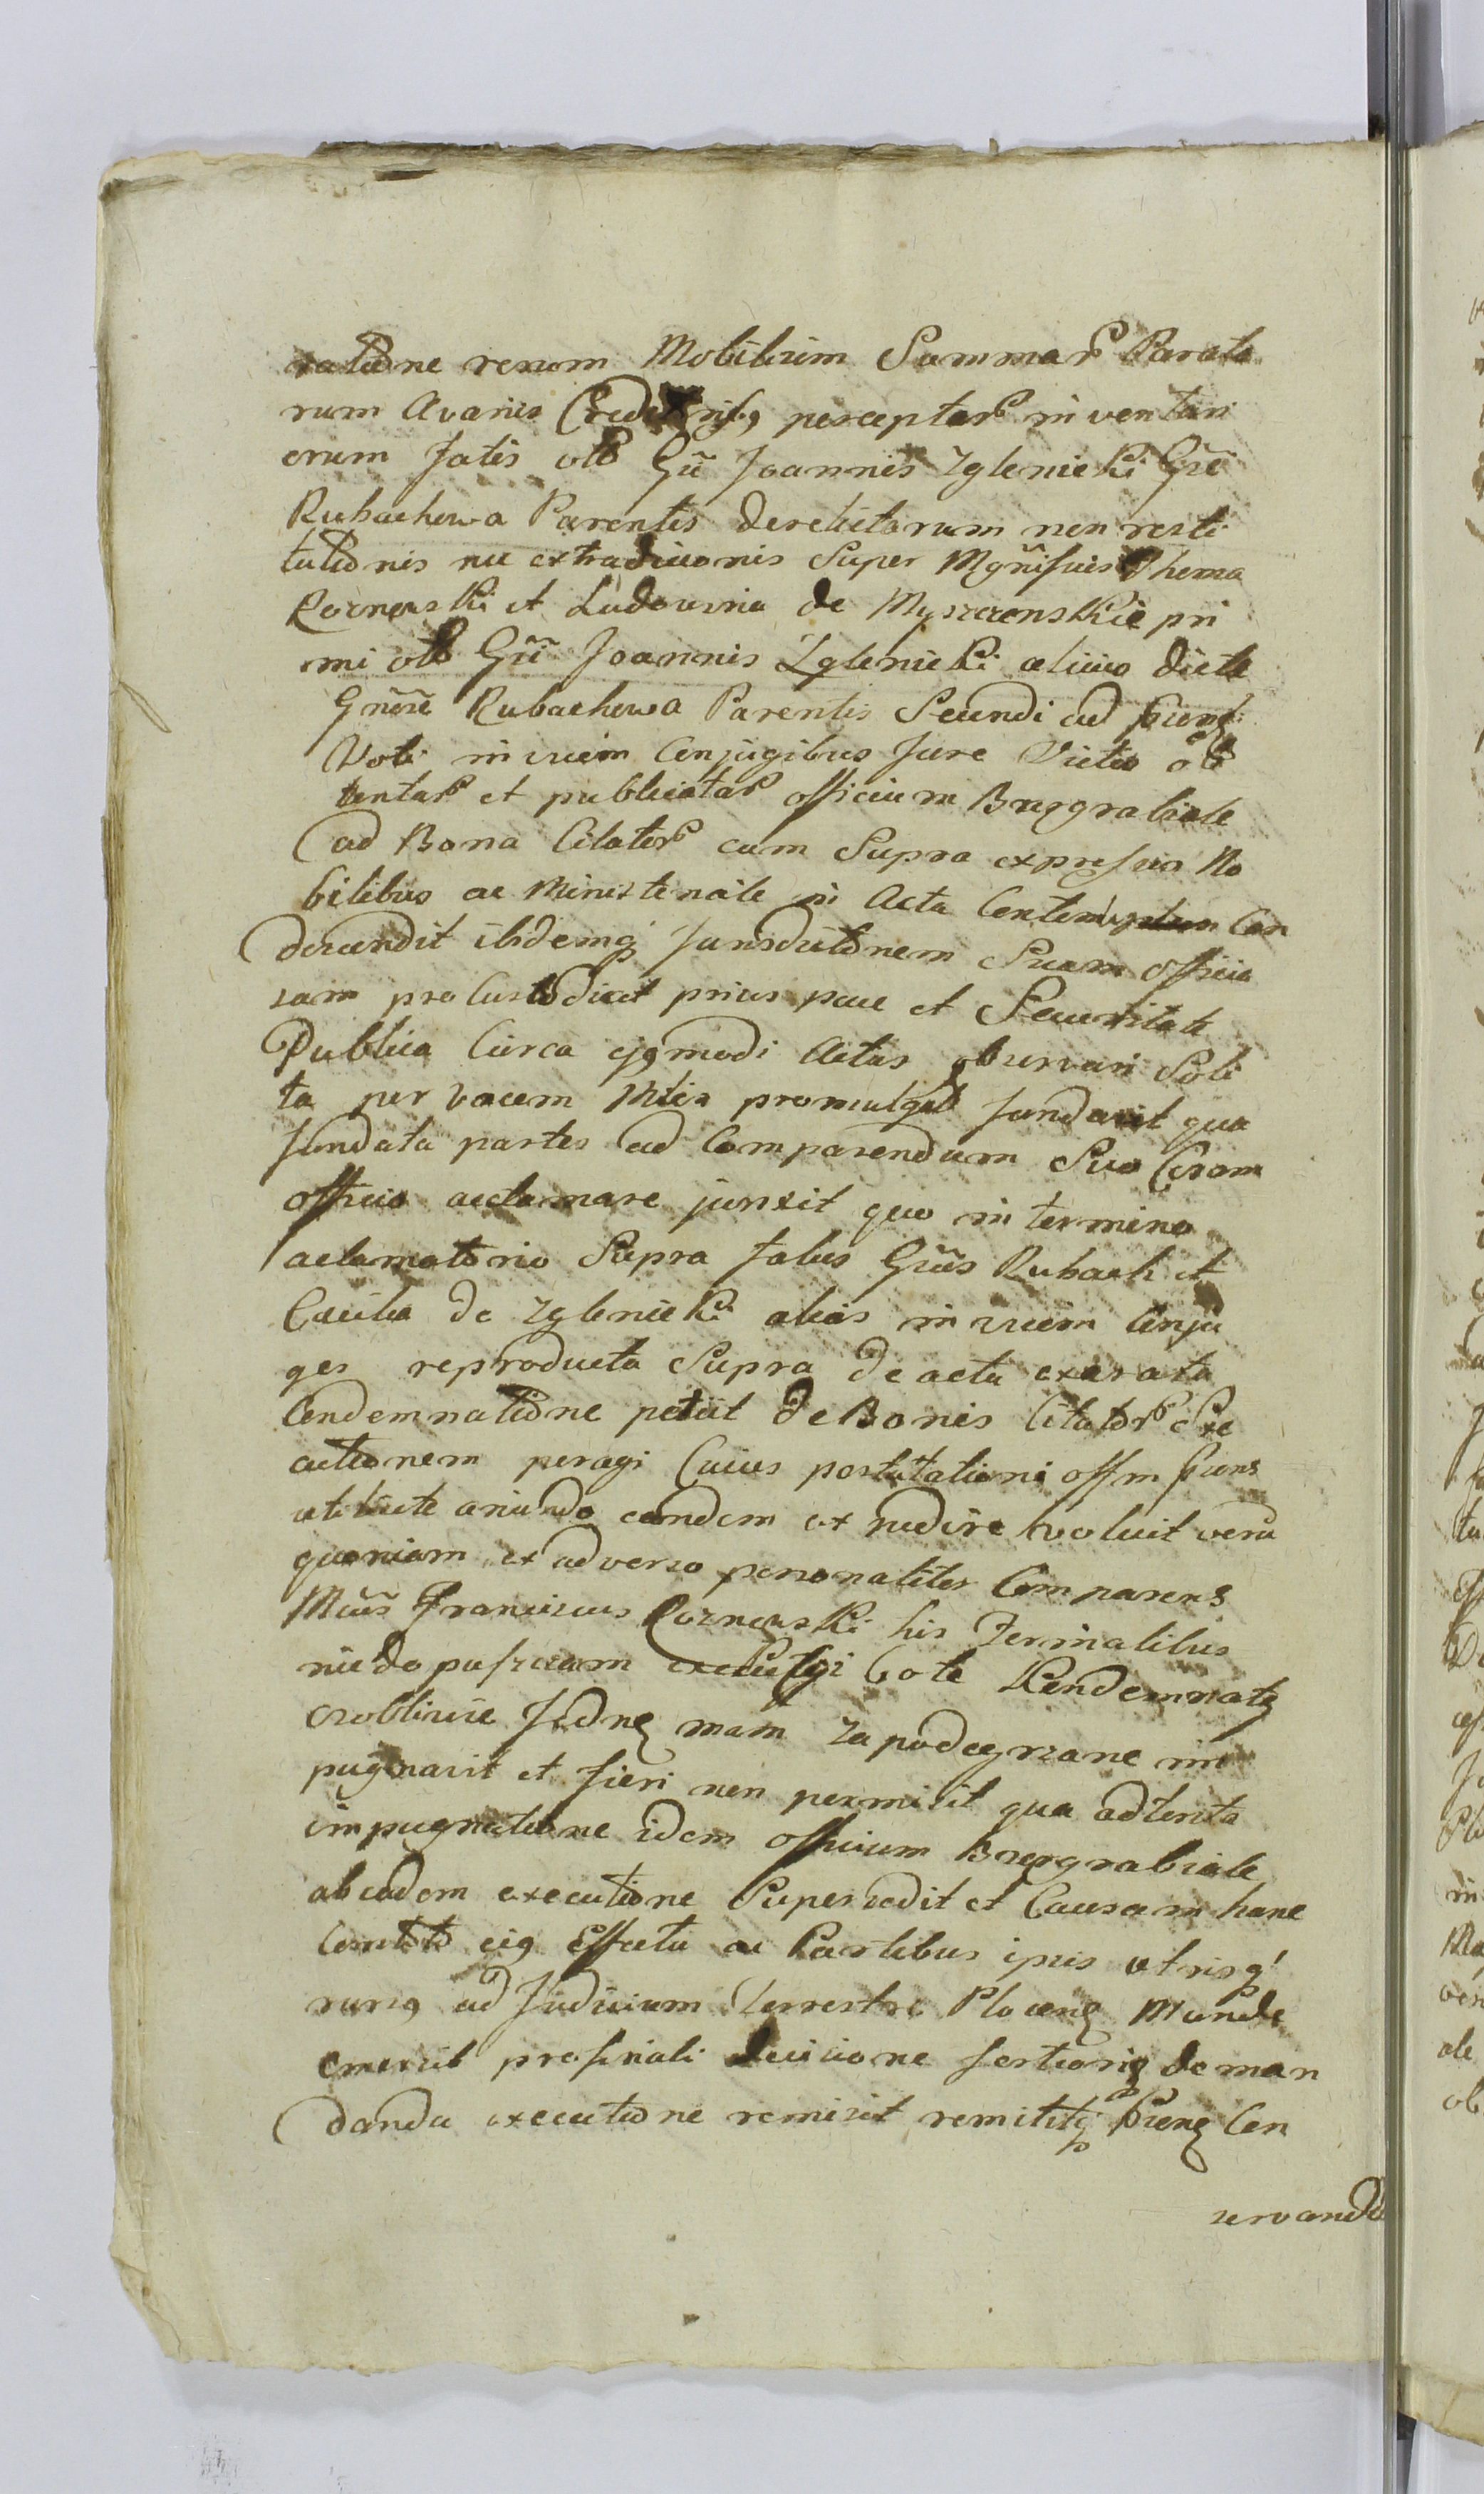 ratione rerum Mobilium Summar Parata
rum a variis Creditoribq perceptar inventari
orum fatis olb Gu Joannis Zglenicki Gre
Rubachowa Parentis derelictarum non resti
tutionis nec extradicionis Super Mgnificis Thoma
Roznowski et Ludovica de Myszczenskie pri
mi olb Gu Joannis Zglenicki alius dicte
Gnose Rubachowa Parentis Secundi ad prns
Voti invicem Conjugibus Jure Victo ob
tentar et publicatar officium Burgrabiale
ad Bona Citator cum Supra expressis No
bilibus ac Ministeriale in Acta Contentum Con
descendit ibidemq Jurisdictionem Suam officio
sam pro Custodicit prius pace et Securitate
Publica Circa ejqmodi Actus observari Soli
ta per vocem Mlis promulgat fundavit qua
fundata partes ad Comparendum Suo Coram
officio acclamare junxit quo in termino
aclamatorio Supra fatus Grus Rubach et
Cacilia de Zglenicki alias invicem Conju
ges reproducta Supra de acta exarata
Condemnatione petiit de Bonis Citator Exe
cutionem peragi Cuius postulationi offm prns
ut iuste annuendo eandem ex nedire voluit veru
quoniam ex adverso personaliter Comparens
Mcus Franciscus Roznowski his Formalibus
nie dopuszczam exekucyi bo te Kondemnatę
oczobliwie Jedną mam za podeyrzane im
pugnavit et fieri non permisit qua adtenta
impugnatione idem officium Burgrabiale
ab eadem executione Supersedit et Causam hanc
Cum toto eiq Effectu ac Partibus ipsis utrisq
rursq ad Judicium Terrestre Plocens Mande
emersit pro finali decisione fortioriq deman
danda executione remisit remititq prens Con
servando